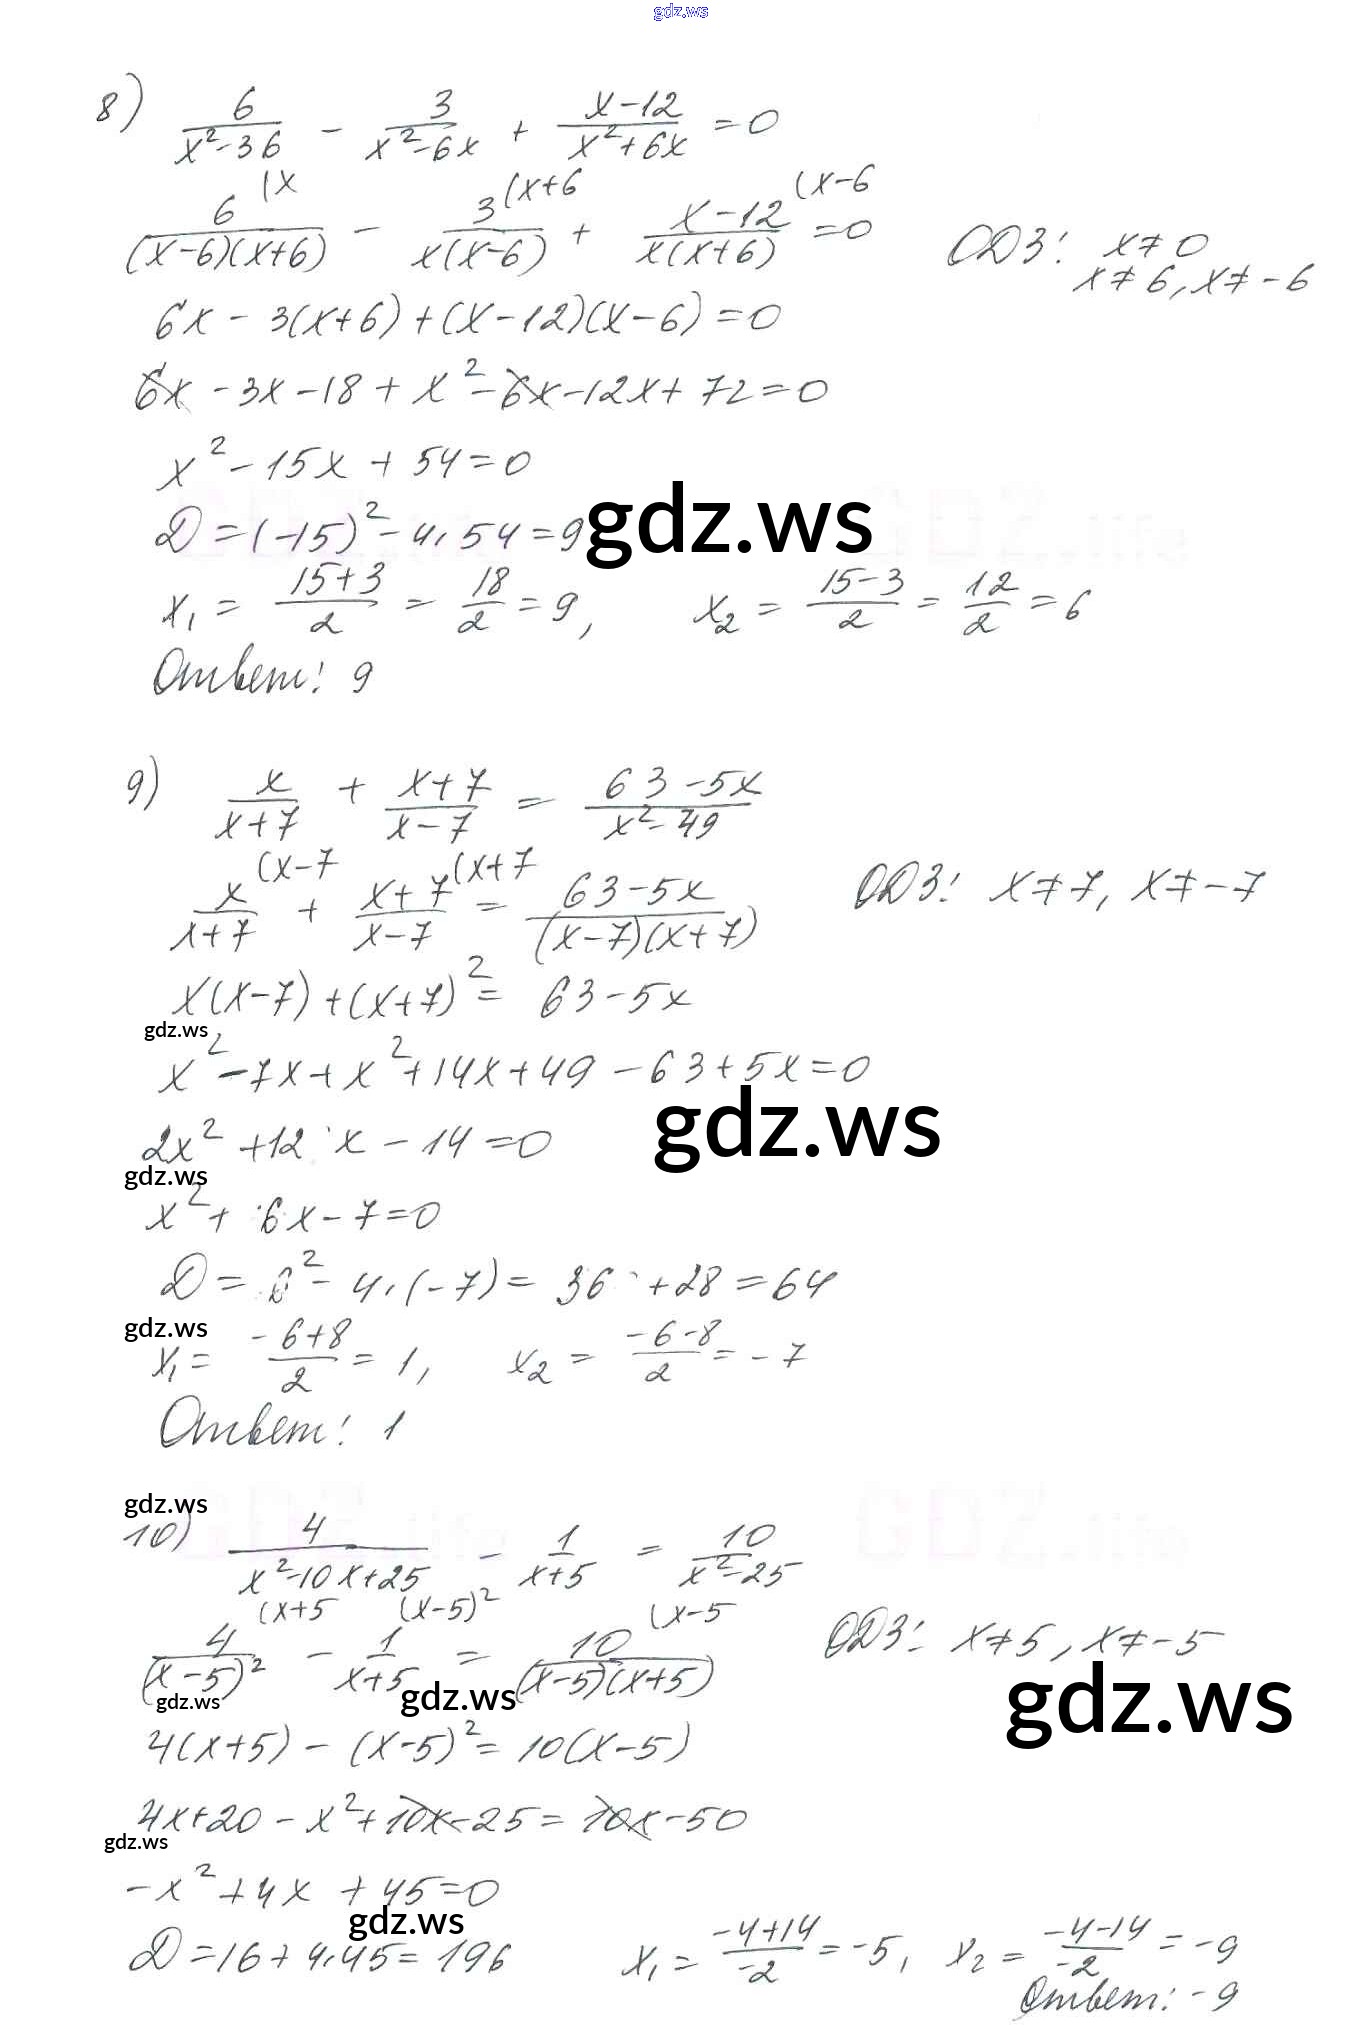 gdz.ws
8) 6/(x²-36) - 3/(x²-6x) + (x-12)/(x²+6x) = 0
6 (x/((x-6)(x+6)) - 3 (x+6/(x(x-6)) + x-12 (x-6/(x(x+6)) = 0 ОДЗ: x≠0
x≠6, x≠-6
6x - 3(x+6) + (x-12)(x-6) = 0
6x - 3x - 18 + x² - 6x - 12x + 72 = 0
x² - 15x + 54 = 0
D = (-15)² - 4·54 = 9 gdz.ws
x₁ = (15+3)/2 = 18/2 = 9, x₂ = (15-3)/2 = 12/2 = 6
Ответ: 9
9) x/(x+7) + (x+7)/(x-7) = (63-5x)/(x²-49)
x (x-7/(x+7) + x+7 (x+7/(x-7) = (63-5x)/((x-7)(x+7)) ОДЗ: x≠7, x≠-7
x(x-7) + (x+7)² = 63-5x
gdz.ws
x² - 7x + x² + 14x + 49 - 63 + 5x = 0
2x² + 12x - 14 = 0 gdz.ws
gdz.ws
x² + 6x - 7 = 0
D = 6² - 4·(-7) = 36 + 28 = 64
gdz.ws
x₁ = (-6+8)/2 = 1, x₂ = (-6-8)/2 = -7
Ответ: 1
gdz.ws
10) 4/(x²-10x+25) - 1/(x+5) = 10/(x²-25)
4 (x+5/(x-5)² - 1 (x-5)²/(x+5) = 10 (x-5/((x-5)(x+5)) ОДЗ: x≠5, x≠-5
gdz.ws gdz.ws gdz.ws
4(x+5) - (x-5)² = 10(x-5)
4x+20 - x² + 10x - 25 = 10x - 50
gdz.ws
-x² + 4x + 45 = 0
gdz.ws
D = 16 + 4·45 = 196 x₁ = (-4+14)/-2 = -5, x₂ = (-4-14)/-2 = -9
Ответ: -9